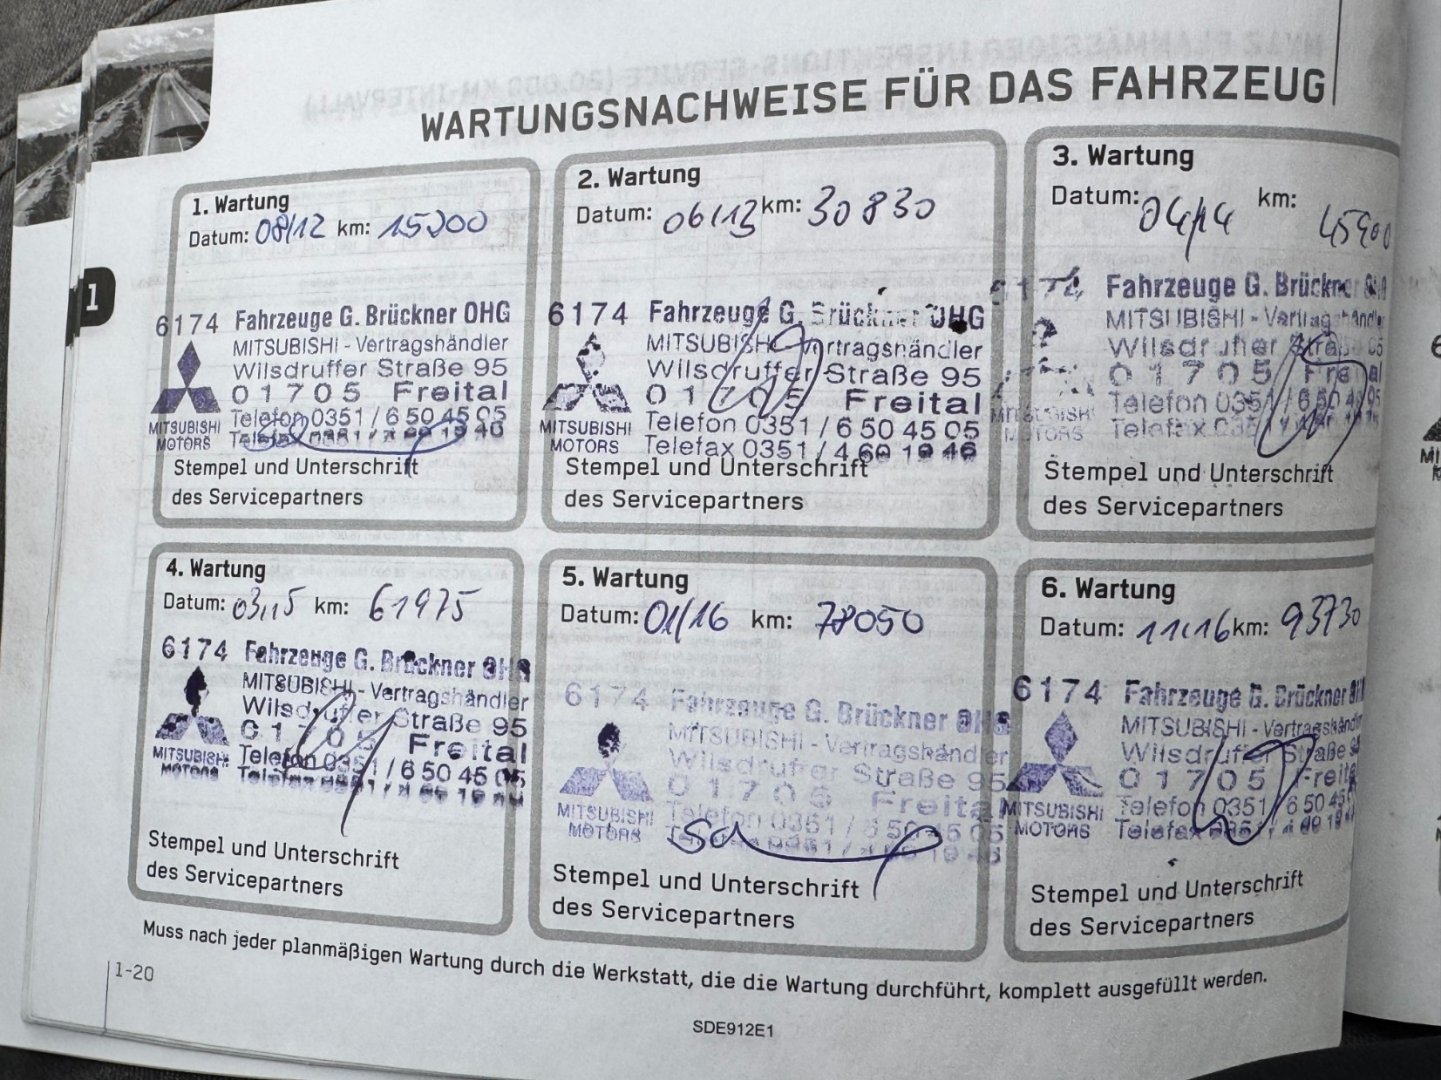 WARTUNGSNACHWEISE FÜR DAS FAHRZEUG
1. Wartung
Datum: 08/12 km: 15200
6174 Fahrzeuge G. Brückner OHG
MITSUBISHI - Vertragshändler
Wilsdruffer Straße 95
01705 Freital
Telefon 0351 / 6 50 45 05
Telefax 0351 / 4 60 19 46
MITSUBISHI
MOTORS
Stempel und Unterschrift
des Servicepartners
2. Wartung
Datum: 06/13 km: 30830
6174 Fahrzeuge G. Brückner OHG
MITSUBISHI - Vertragshändler
Wilsdruffer Straße 95
01705 Freital
Telefon 0351 / 6 50 45 05
Telefax 0351 / 4 60 19 46
MITSUBISHI
MOTORS
Stempel und Unterschrift
des Servicepartners
3. Wartung
Datum: 04/14 km: 45900
6174 Fahrzeuge G. Brückner OHG
MITSUBISHI - Vertragshändler
Wilsdruffer Straße 95
01705 Freital
Telefon 0351 / 6 50 45 05
Telefax 0351
MITSUBISHI
MOTORS
Stempel und Unterschrift
des Servicepartners
4. Wartung
Datum: 03/15 km: 61975
6174 Fahrzeuge G. Brückner OHG
MITSUBISHI - Vertragshändler
Wilsdruffer Straße 95
01705 Freital
Telefon 0351 / 6 50 45 05
Telefax 0351 / 4 60 19 46
MITSUBISHI
MOTORS
Stempel und Unterschrift
des Servicepartners
5. Wartung
Datum: 01/16 km: 78050
6174 Fahrzeuge G. Brückner OHG
MITSUBISHI - Vertragshändler
Wilsdruffer Straße 95
01705 Freital
Telefon 0351 / 6 50 45 05
Telefax 0351 / 4 60 19 46
MITSUBISHI
MOTORS
Stempel und Unterschrift
des Servicepartners
6. Wartung
Datum: 11.16 km: 93730
6174 Fahrzeuge G. Brückner OH
MITSUBISHI - Vertragshändler
Wilsdruffer Straße 95
01705 Freital
Telefon 0351 / 6 50 45
Telefax 0351 / 4 60 19
MITSUBISHI
MOTORS
Stempel und Unterschrift
des Servicepartners
Muss nach jeder planmäßigen Wartung durch die Werkstatt, die die Wartung durchführt, komplett ausgefüllt werden.
1-20
SDE912E1
1